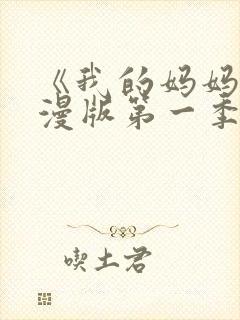 《我的妈妈
漫版第一季
喫土君